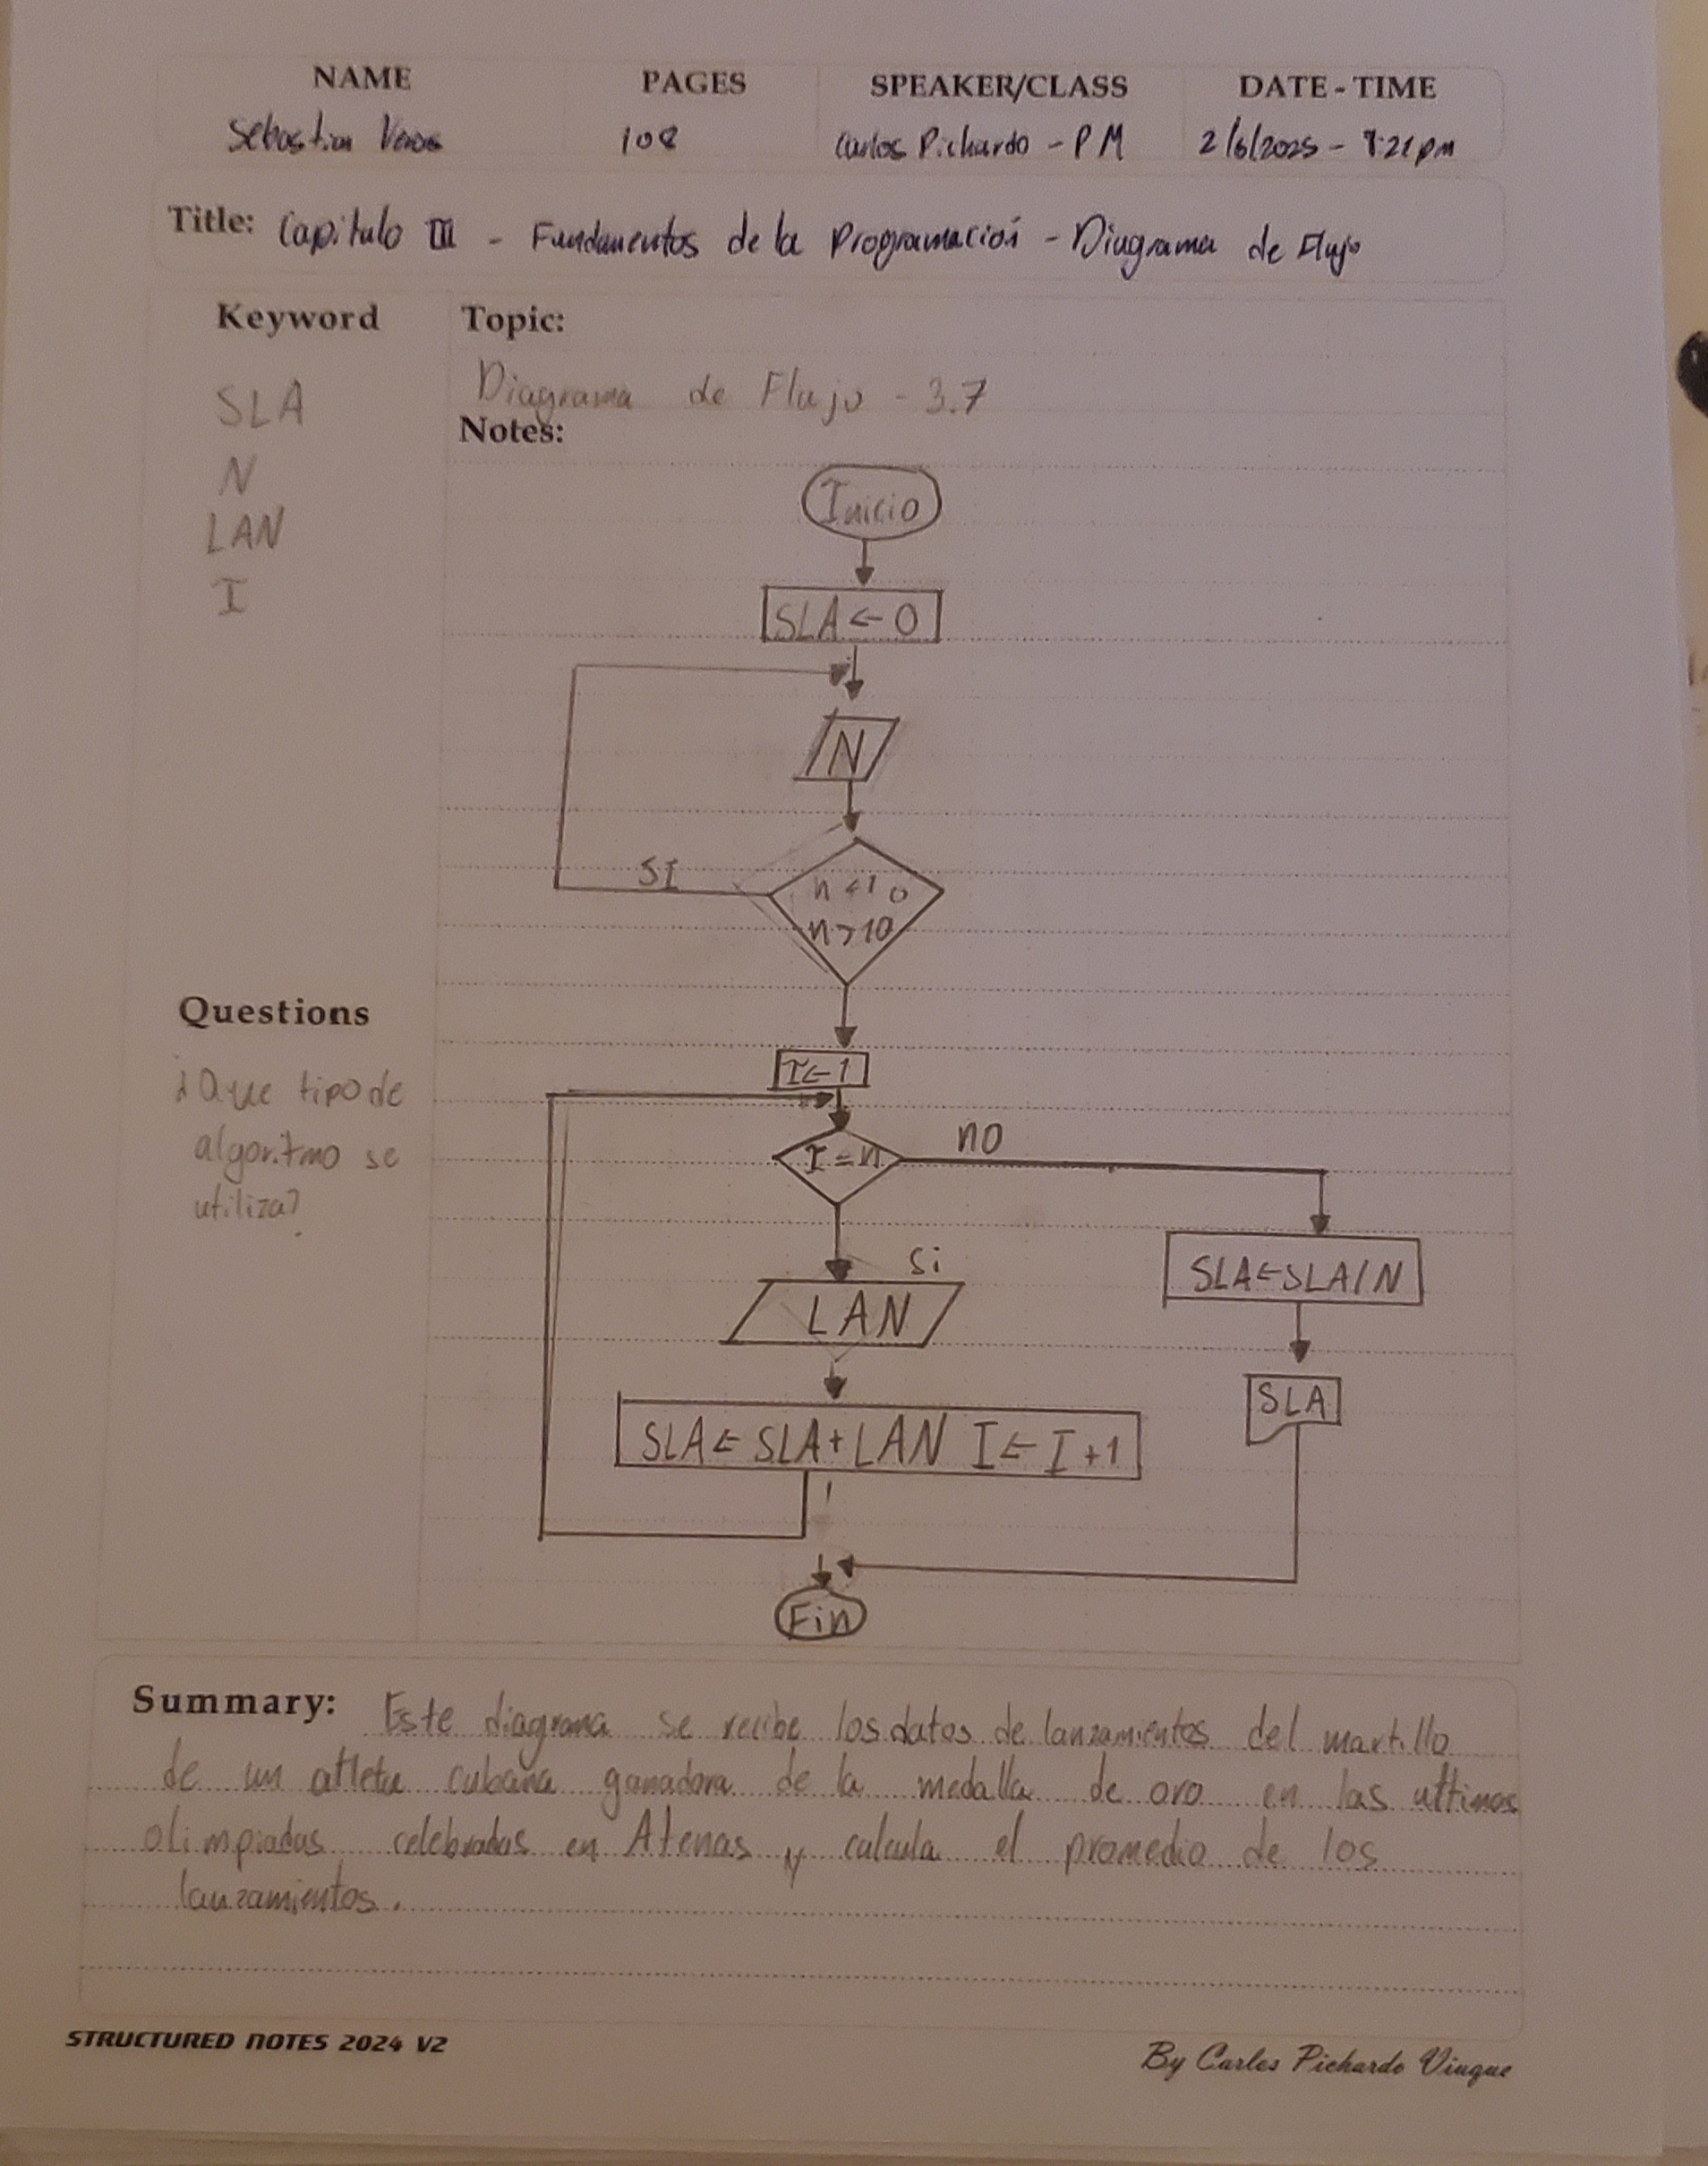 NAME PAGES SPEAKER/CLASS DATE - TIME
Sebastian 108 Carlos Pichardo - PM 2/6/2025 - :21 pm
Title: Capitulo III - Fundamentos de la Programación - Diagrama de Flujo
Keyword
SLA
N
LAN
I
Topic:
Diagrama de Flujo - 3.7
Notes:
Inicio
SLA ← 0
N
SI
n < 1 o
n > 10
I ← 1
I = n
no
Si
LAN
SLA ← SLA + LAN I ← I + 1
SLA ← SLA / N
SLA
Fin
Questions
¿Que tipo de
algoritmo se
utiliza?
Summary: Este diagrama se recibe los datos de lanzamientos del martillo
de un atleta cubana ganadora de la medalla de oro en las ultimas
olimpiadas celebradas en Atenas y calcula el promedio de los
lanzamientos.
STRUCTURED NOTES 2024 V2
By Carlos Pichardo Viuque